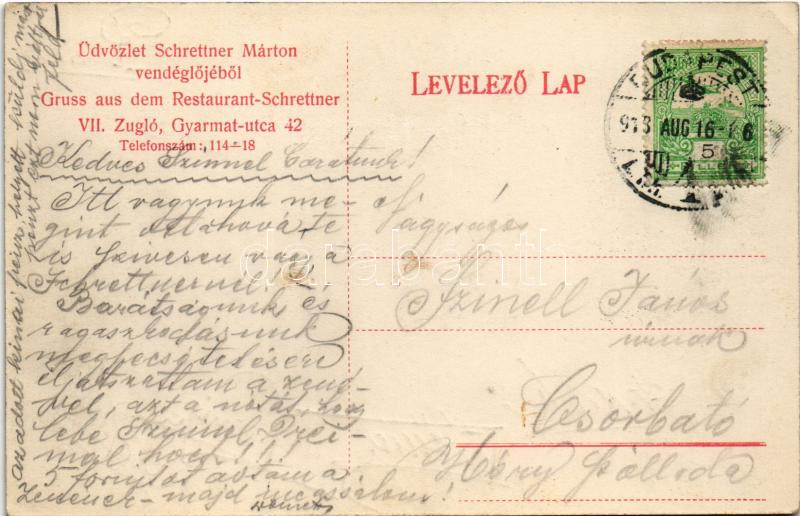 Üdvözlet Schrettner Márton
vendéglőjéből
Gruss aus dem Restaurant-Schrettner
VII. Zugló, Gyarmat-utca 42
Telefonszám: 114–18
LEVELEZŐ LAP
BUDAPEST
913 AUG 16
5
Kedves Szinnel Barátunk!
Itt vagyunk me-
gint ott ahová te
is szivesen vagy a
Schrettnernél!!
Barátságunk és
ragaszkodásunk
megbecsülésére
eljátszattam a zené-
vel, azt a nótát, hogy
lebe Szinnel
mal hoch!!!
5 forintot adtam a
majd
Nagyságos
Szinell János
úrnak
Csorbató
Móry Szálloda
darabanth